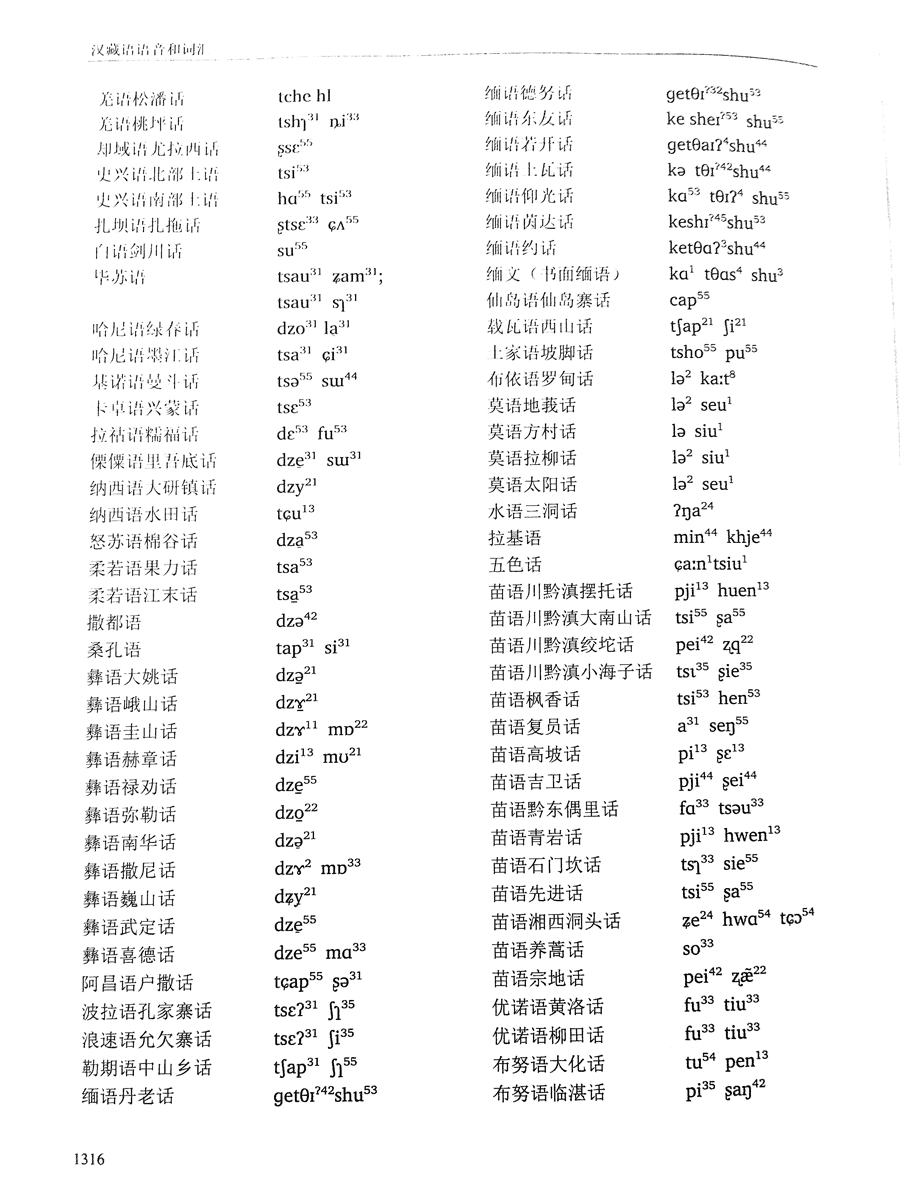 汉藏语语音和词汇
羌语松潘话 tche hl
羌语桃坪话 tshʅ³¹ ȵi³³
却域语尤拉西话 ʂsɛ⁵⁵
史兴语北部土语 tsi⁵³
史兴语南部土语 hɑ⁵⁵ tsi⁵³
扎坝语扎拖话 ʂtsɛ³³ ɕʌ⁵⁵
白语剑川话 su⁵⁵
毕苏语 tsau³¹ ʑam³¹;
tsau³¹ sʅ³¹
哈尼语绿春话 dzo³¹ la³¹
哈尼语墨江话 tsa³¹ ɕi³¹
基诺语曼斗话 tsə⁵⁵ sɯ⁴⁴
卡卓语兴蒙话 tsɛ⁵³
拉祜语糯福话 dɛ⁵³ fu⁵³
傈僳语里吾底话 dze̱³¹ sɯ³¹
纳西语大研镇话 dzy²¹
纳西语水田话 tɕu¹³
怒苏语棉谷话 dza̱⁵³
柔若语果力话 tsa⁵³
柔若语江末话 tsa̱⁵³
撒都语 dzə⁴²
桑孔语 tap³¹ si³¹
彝语大姚话 dzə̱²¹
彝语峨山话 dzɤ̱²¹
彝语圭山话 dzɤ¹¹ mɒ²²
彝语赫章话 dzi¹³ mʋ²¹
彝语禄劝话 dze̱⁵⁵
彝语弥勒话 dzo̱²²
彝语南华话 dzə̱²¹
彝语撒尼话 dzɤ² mɒ³³
彝语巍山话 dʑy²¹
彝语武定话 dze̱⁵⁵
彝语喜德话 dze⁵⁵ mɑ³³
阿昌语户撒话 tɕap⁵⁵ ʂə³¹
波拉语孔家寨话 tsɛʔ³¹ ʃʅ³⁵
浪速语允欠寨话 tsɛʔ³¹ ʃi³⁵
勒期语中山乡话 tʃap³¹ ʃʅ⁵⁵
缅语丹老话 ɡetθɪˀ⁴²shu⁵³
缅语德努话 ɡetθɪˀ³²shu⁵³
缅语东友话 ke sheɪˀ⁵³ shu⁵⁵
缅语若开话 ɡetθaɪʔ⁴shu⁴⁴
缅语土瓦话 kə tθɪˀ⁴²shu⁴⁴
缅语仰光话 kɑ⁵³ tθɪʔ⁴ shu⁵⁵
缅语茵达话 keshɪˀ⁴⁵shu⁵³
缅语约话 ketθɑʔ³shu⁴⁴
缅文（书面缅语） kɑ¹ tθɑs⁴ shu³
仙岛语仙岛寨话 cap⁵⁵
载瓦语西山话 tʃap²¹ ʃi²¹
土家语坡脚话 tsho⁵⁵ pu⁵⁵
布依语罗甸话 lə² kaːt⁸
莫语地莪话 lə² seu¹
莫语方村话 lə siu¹
莫语拉柳话 lə² siu¹
莫语太阳话 lə² seu¹
水语三洞话 ʔŋa²⁴
拉基语 min⁴⁴ khje⁴⁴
五色话 ɕaːn¹tsiu¹
苗语川黔滇摆托话 pji¹³ huen¹³
苗语川黔滇大南山话 tsi⁵⁵ ʂa⁵⁵
苗语川黔滇绞坨话 pei⁴² ʐɋ²²
苗语川黔滇小海子话 tsɩ³⁵ ʂie³⁵
苗语枫香话 tsi⁵³ hen⁵³
苗语复员话 a³¹ seŋ⁵⁵
苗语高坡话 pi¹³ ʂɛ¹³
苗语吉卫话 pji⁴⁴ ʂei⁴⁴
苗语黔东偶里话 fɑ³³ tsəu³³
苗语青岩话 pji¹³ hwen¹³
苗语石门坎话 tsʅ³³ sie⁵⁵
苗语先进话 tsi⁵⁵ ʂa⁵⁵
苗语湘西洞头话 ʑe²⁴ hwɑ⁵⁴ tɕɔ⁵⁴
苗语养蒿话 so³³
苗语宗地话 pei⁴² ʐæ̃²²
优诺语黄洛话 fu³³ tiu³³
优诺语柳田话 fu³³ tiu³³
布努语大化话 tu⁵⁴ pen¹³
布努语临湛话 pi³⁵ ʂaŋ⁴²
1316